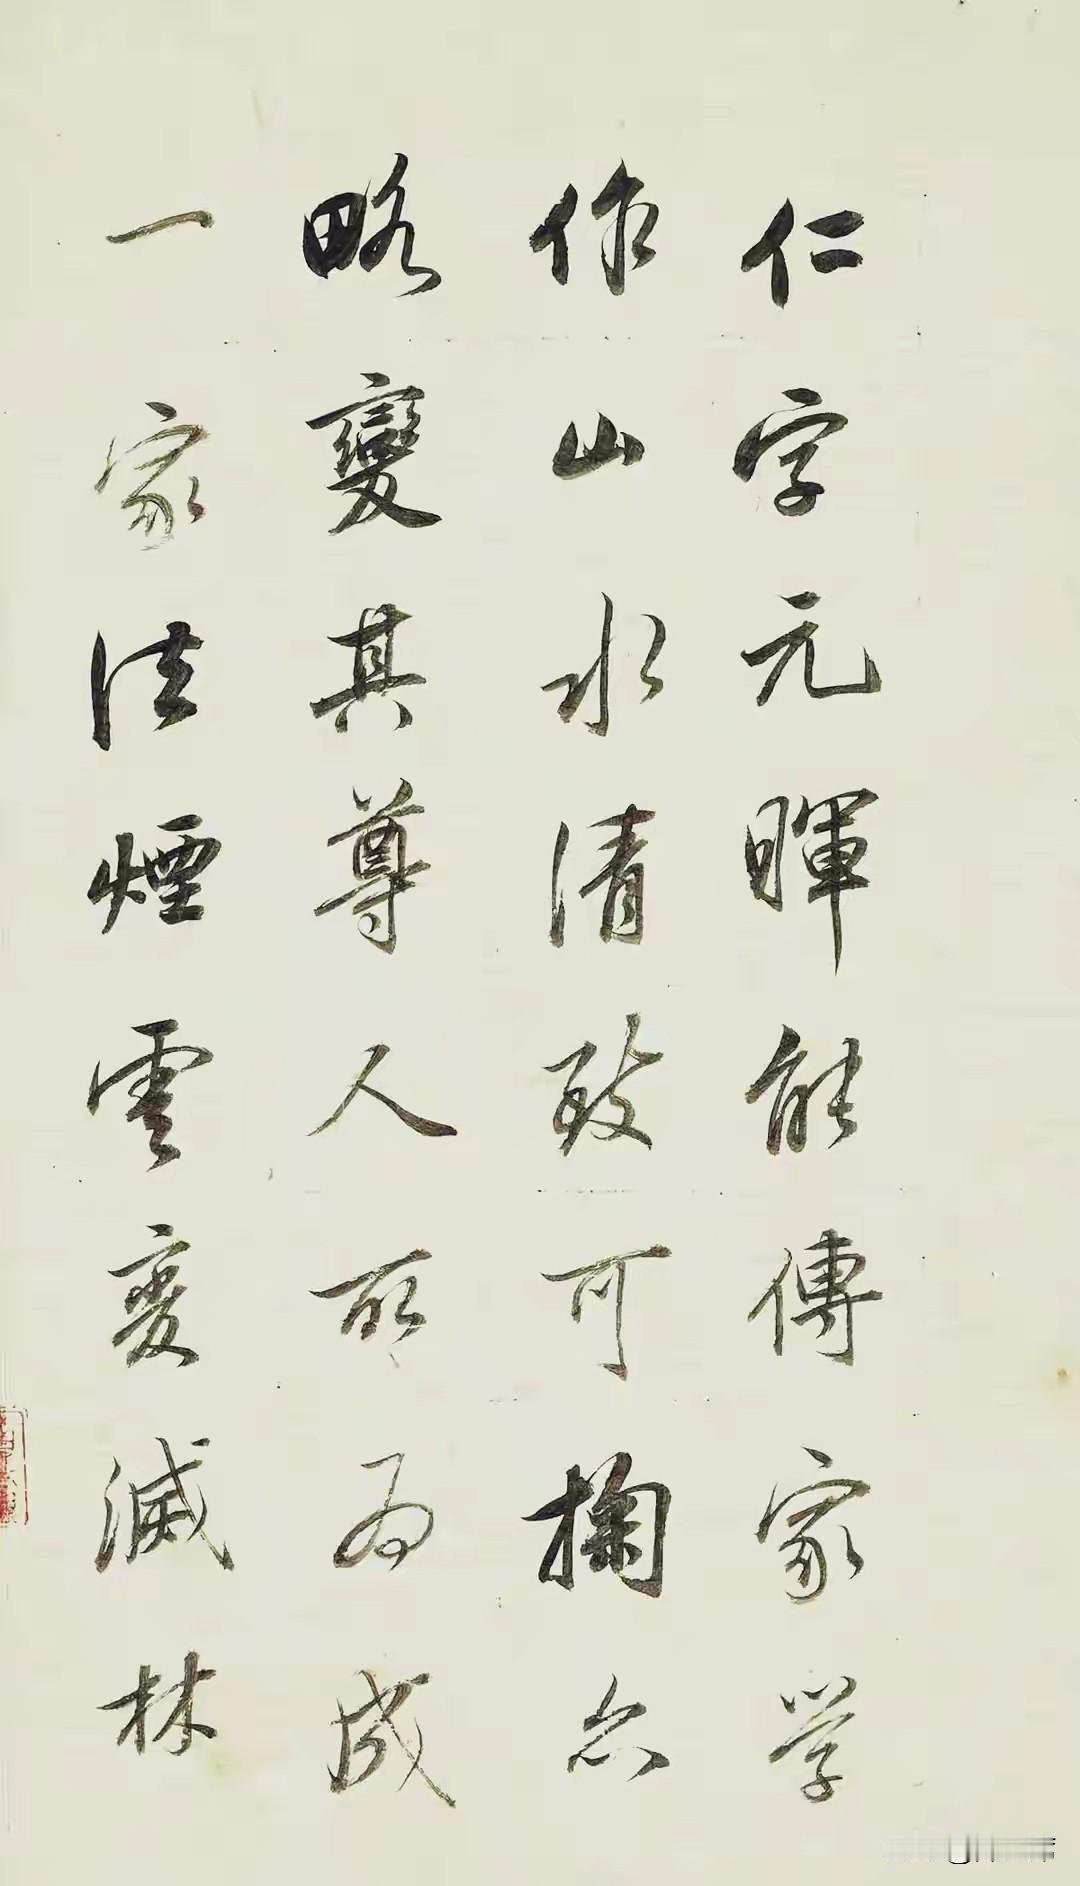 仁字元暉能傳家学
作山水清致可掬亦
略變其尊人所為成
一家法煙雲變滅林